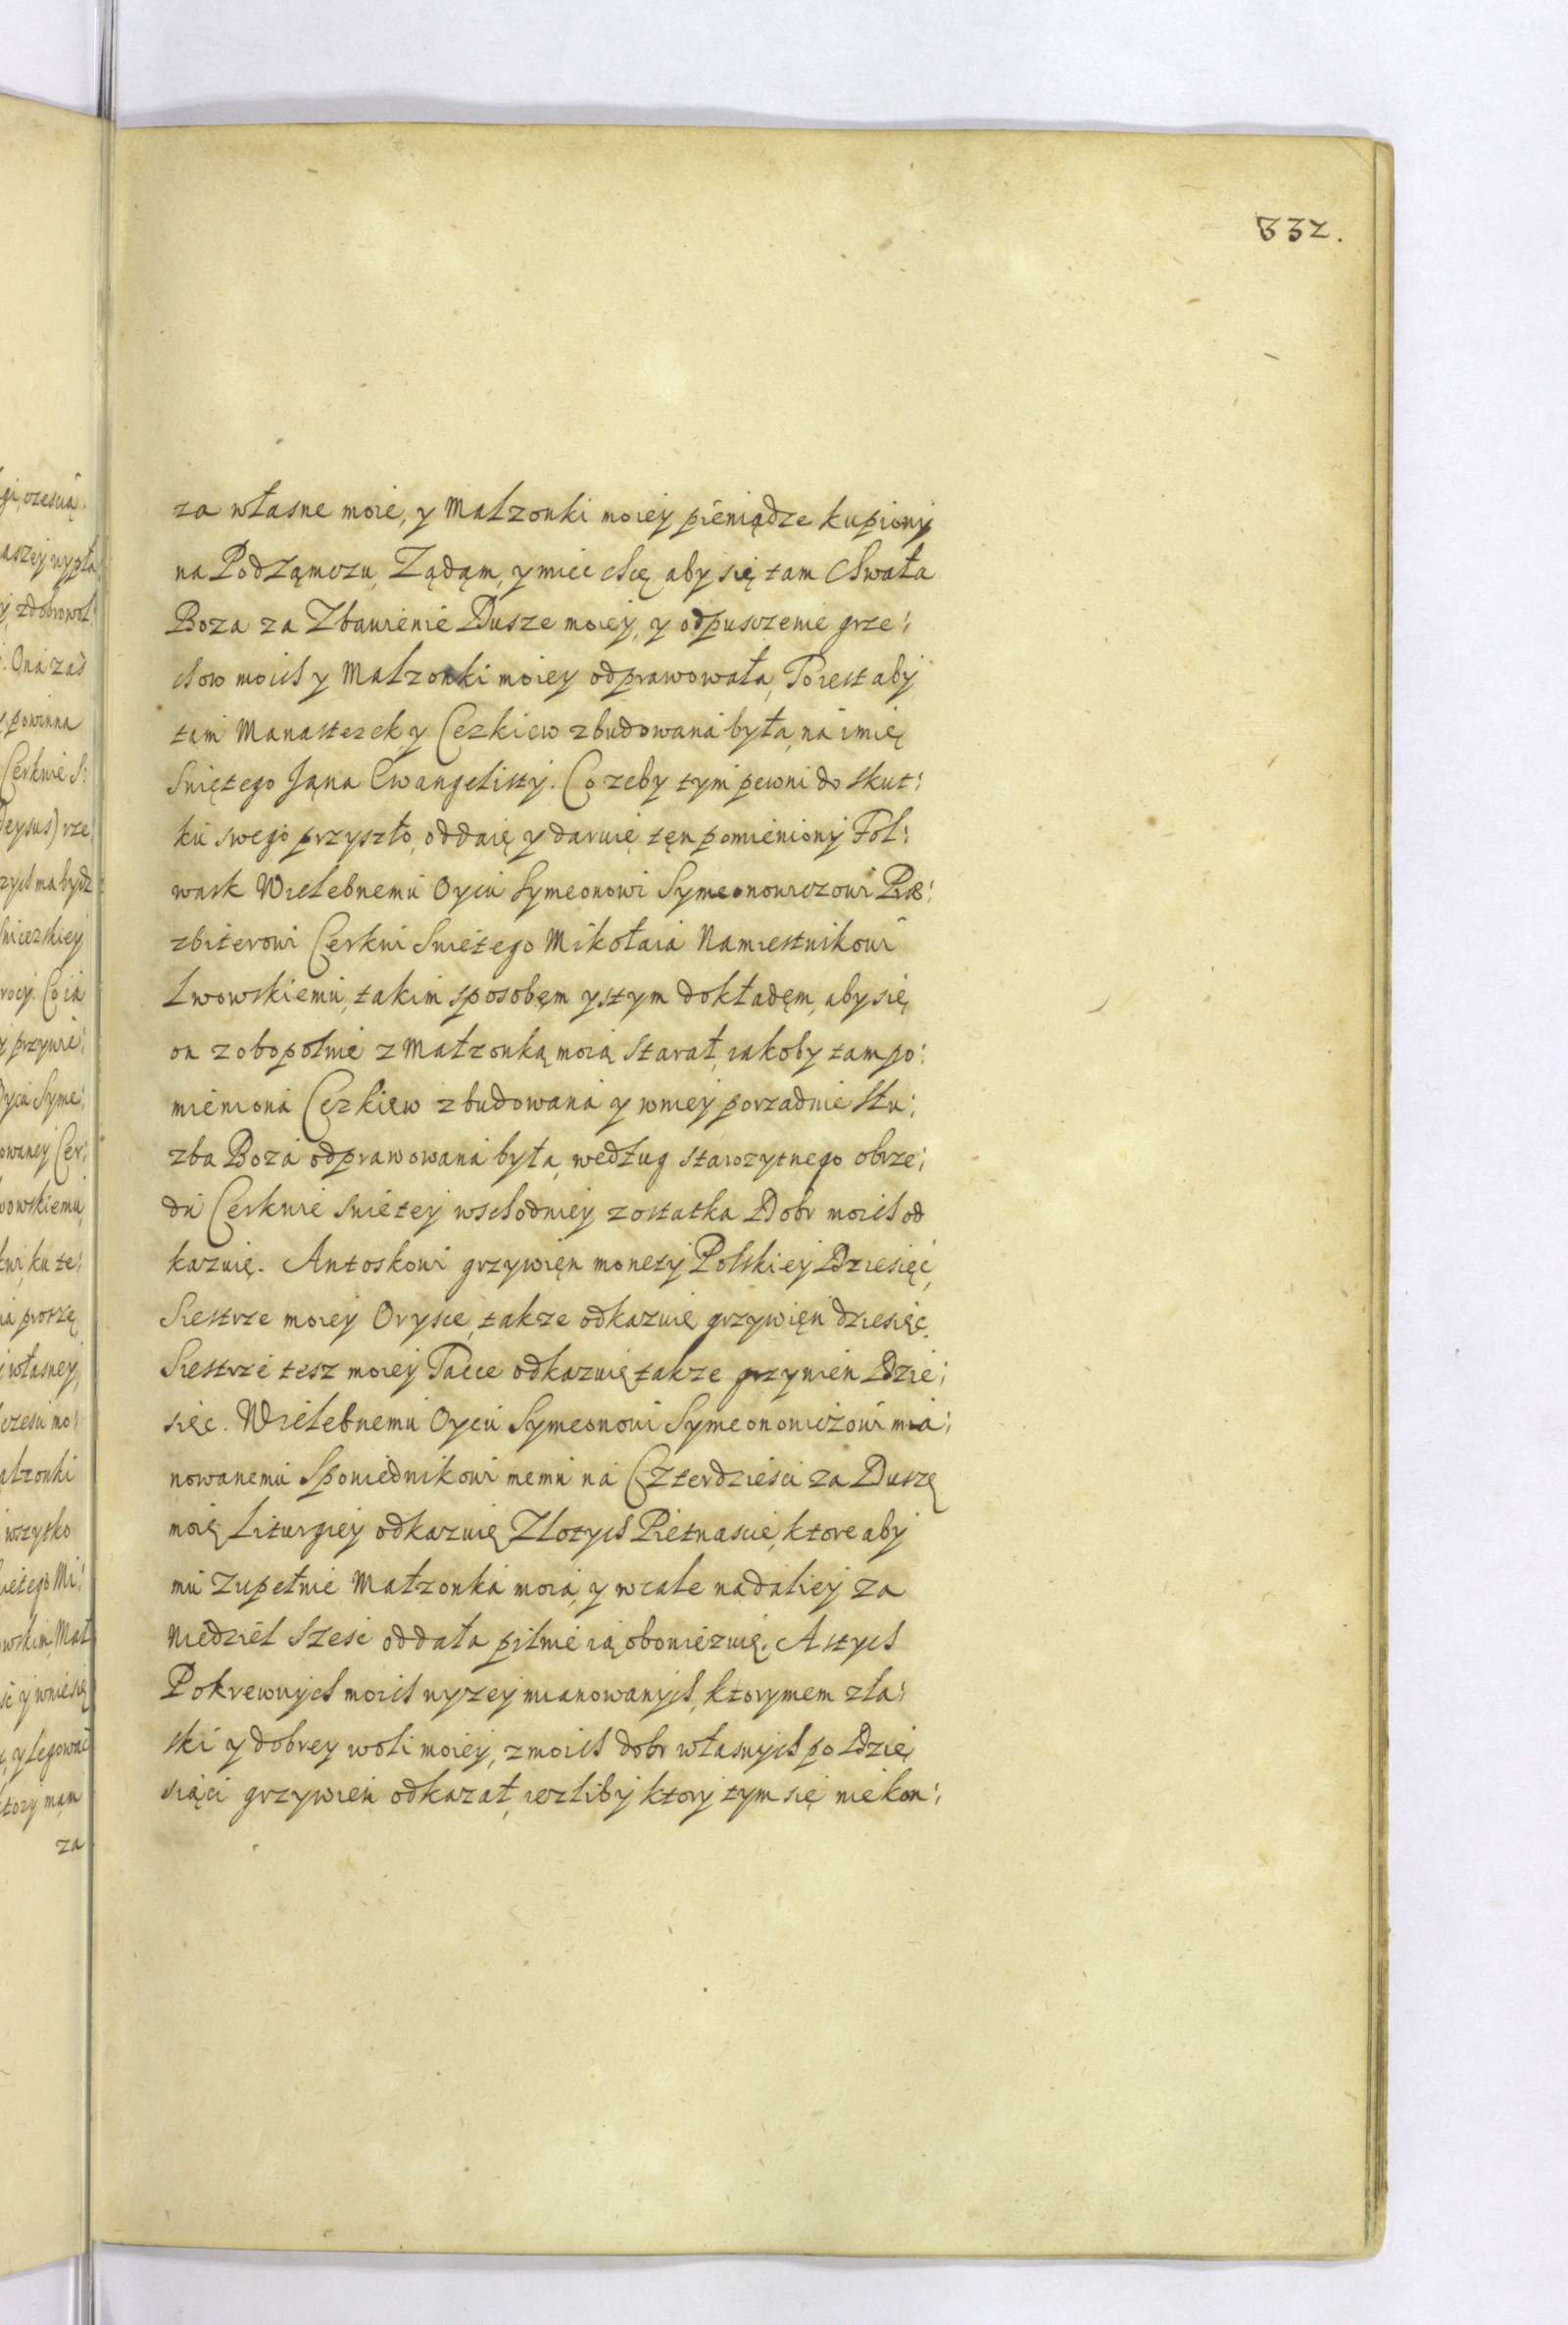 832.
za własne moie, y Małzonki moiey pieniądze kupiony
na Podzamczu, Ządąm, y miec chcę aby się tam Chwała
Boza za Zbawienie Dusze moiey, y odpusczenie grze:
chow moich y Małzonki moiey odprawowała, To iest aby
tam Manasterek y Cerkiew zbudowana była, na imię
Swiętego Jąna Ewangelisty. Co zeby tym pewni do skut:
ku swego przyszło, oddaię y daruię tęn pomieniony Fol:
wark Wielebnemu Oycu Symeonowi Symeonowiczowi Præ:
zbiterowi Cerkwi Swietego Mikołaia Namiestnikowi
Lwowskiemu, takim sposobęm y stym dokładęm, aby się
on zobopolnie z Małzonką moią starał, iakoby tam po:
mieniona Cerkięw zbudowana y wniey porzadnie słu:
zba Boza odprawowana była, według starozytnego obrze:
du Cerkwie Swietey wschodniey zostatka Dobr moich od
kazuię. Antoskowi grzywięn monety Polskiey Dziesięć,
Siestrze moiey Orysce, takze odkazuię grzywięn dziesięc.
Siestrze tesz moiey Pacce odkazuię takze grzywien Dzie:
sięc. Wielebnemu Oycu Symeonowi Symeonowiczowi mia:
nowanemu Spowiednikowi memu na Czterdziesci za Duszę
moię Liturgiey odkazuię Złotych Pietnascie, ktore aby
mu zupełnie Małzonka moia, y wcale nadaliey za
Niedziel Szesc oddała pilnie ią obowiezuię. A stych
Pokrewnych moich wyzey mianowanych, ktorymem zła:
ski y dobrey woli moiey, z moich dobr własnych po Dzie
siąci grzywien odkazał, iezliby ktory tym się niekon: